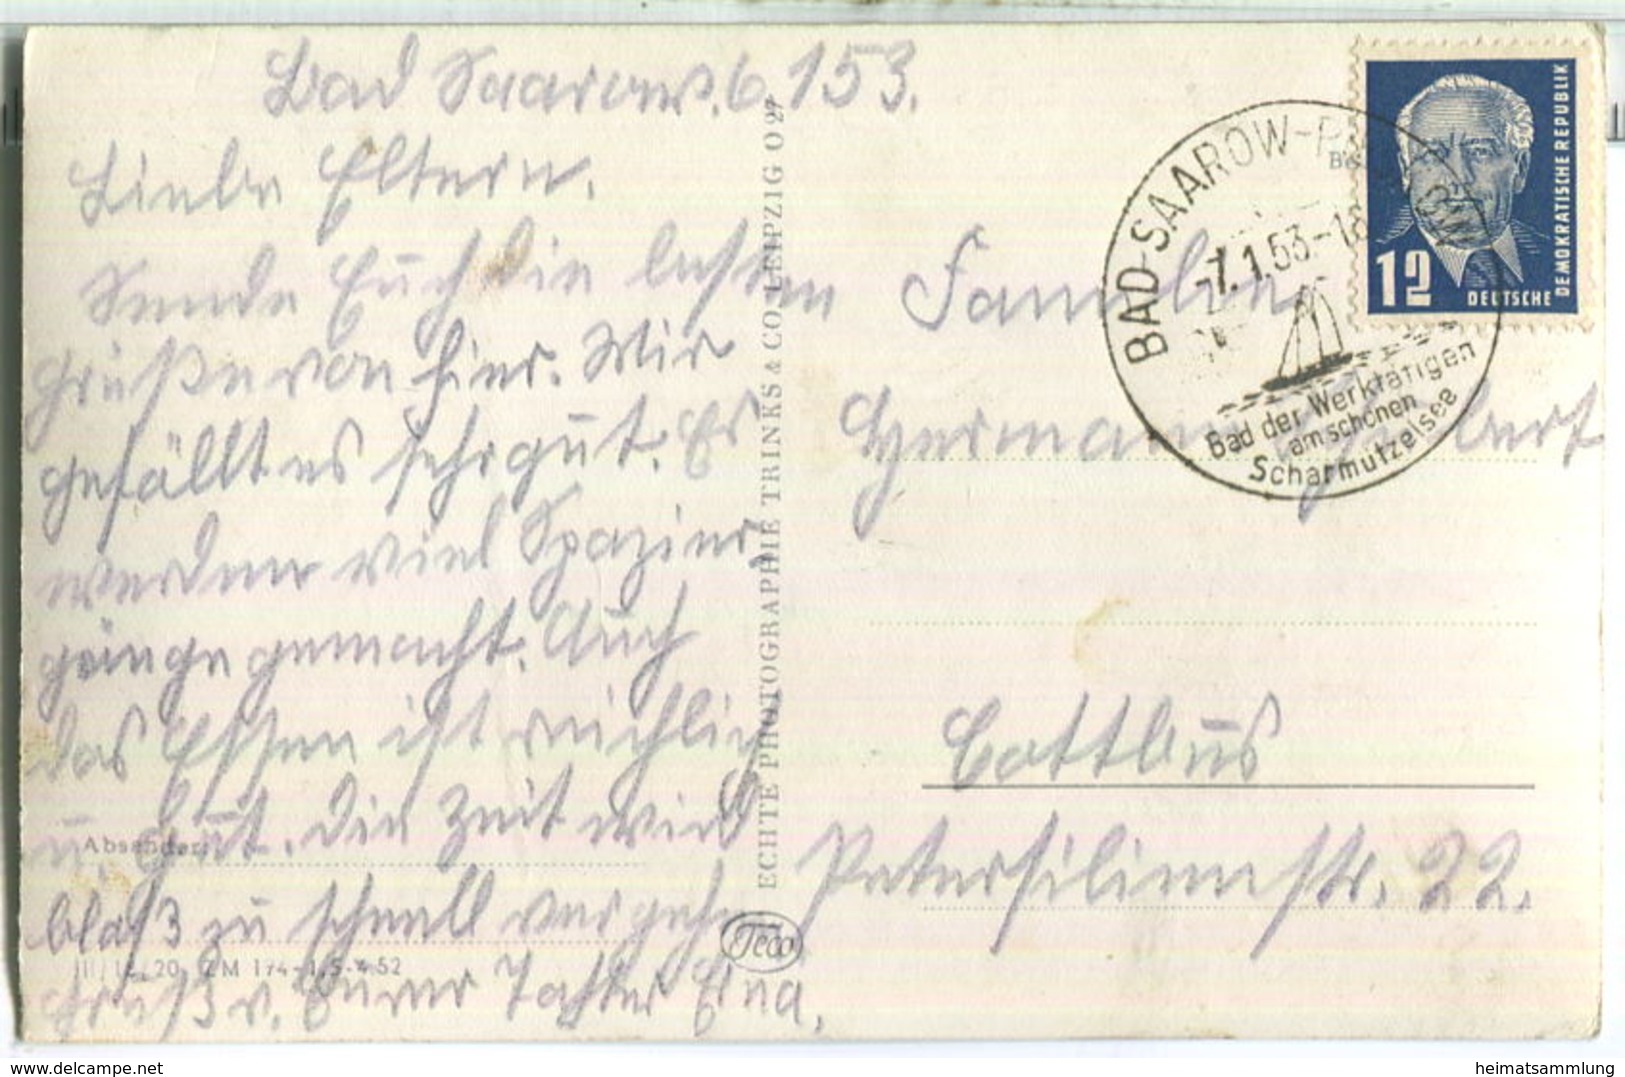 Bad Saarow, 6.1 53.
Liebe Eltern.
Sende Euch die besten
Grüße von hier. Wir
gefällt es sehr gut. Es
werden viel Spazier,
gänge gemacht. Auch
das Essen ist reichlich
u. gut. Die Zeit wird
blos zu schnell vergehn
Gruß v. Eurer Tochter
Absender:
III/18/20 ZM 174-1,5-4.52
ECHTE PHOTOGRAPHIE TRINKS & CO. LEIPZIG O 27
Teco
BAD-SAAROW-
-7.1.53-18
Bad der Werktätigen
am schönen
Scharmützelsee
12
DEUTSCHE
DEMOKRATISCHE REPUBLIK
Familie
Hermann
Cottbus
Petersilienstr. 22.
www.delcampe.net
heimatsammlung